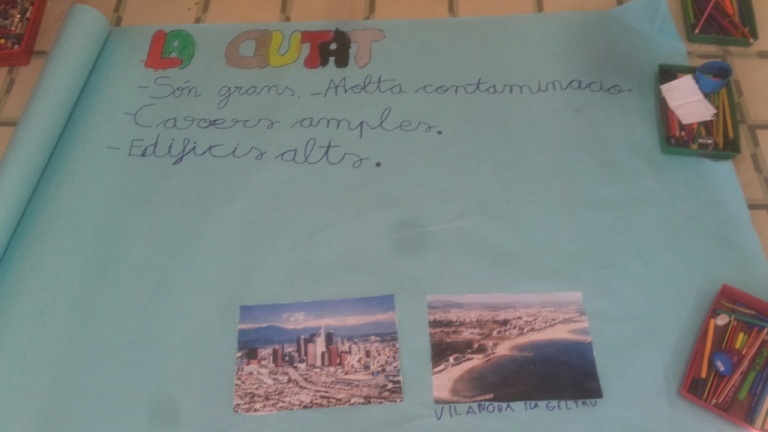 LA CIUTAT
-Són grans. -Molta contaminacio.
-Carrers amples.
-Edificis alts.
VILANOBA ILA GELTRU